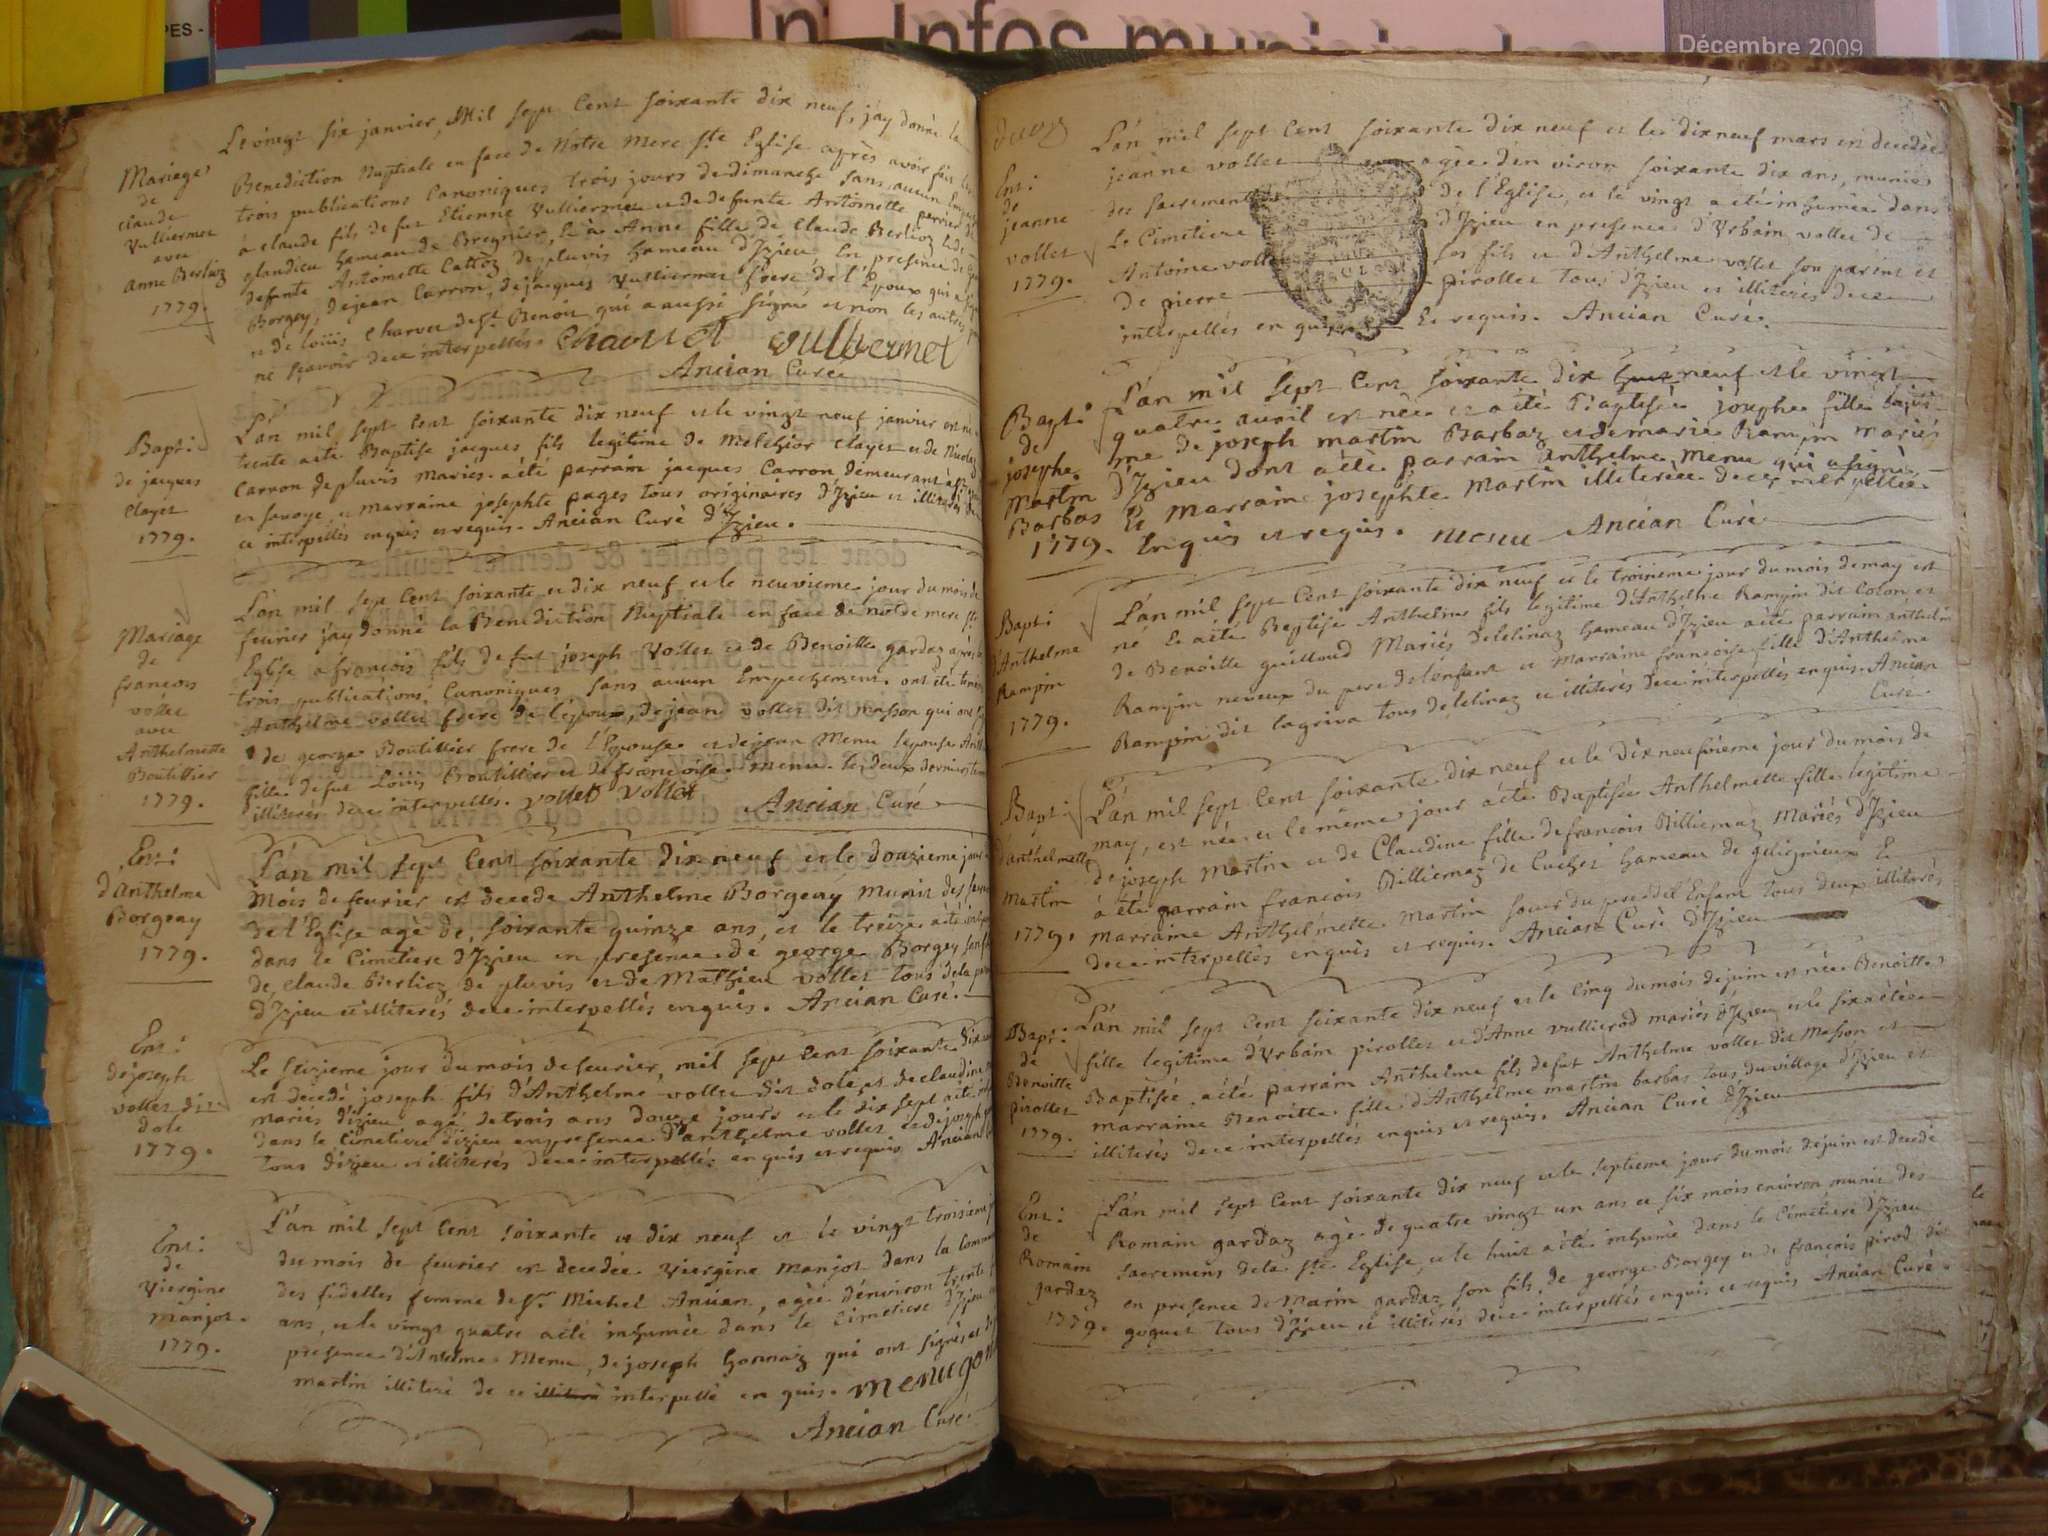 PES -
In' Infos municipales
Décembre 2009
Mariage
de
claude
Vulliermet
avec
anne Berlioz
1779.
Le vingt six janvier, Mil sept Cent soixante dix neuf, j'ay donné la
Benediction Nuptiale en face de Notre Mere Ste Eglise après avoir fait les
trois publications Canoniques trois jours de dimanche sans aucun
à claude fils de fut Etienne Vulliermet et de defunte Antoinette perrier de
glandieu hameau de Bregnier, & à Anne fille de Claude Berlioz & de
defunte Antoinette Cattoz de pluvis hameau d'Izieu, En presence de
Borgey, de jean Carron, de jacques Vulliermet frere de l'Epoux qui a
et de loüis Charvet de St Benoit qui a aussi signé et non les autres
ne sçavoir de ce interpellés. Charvet vulliermet
Ancian Curé
Bapt:
de jacques
Clayet
1779.
L'an mil sept Cent soixante dix neuf et le vingt neuf janvier est né
trente a été Baptisé jacques fils legitime de Melchior Clayet et de Nicolas
Carron de pluvis Mariés. a été parrain jacques Carron demeurant à
en savoye, et marraine josephte pages tous originaires d'Izieu et illiterés de
ce interpellés enquis et requis. Ancian Curé d'Izieu.
Mariage
de
françois
vollet
avec
Anthelmette
Boutillier
1779.
L'an mil sept Cent soixante et dix neuf et le neuvieme jour du mois de
fevrier j'ay donné la Benediction Nuptiale en face de notre mere Ste
Eglise a françois fils de fut joseph Vollet et de Benoitte gardaz après
trois publications Canoniques sans aucun Empechement. ont été temoins
Anthelme vollet frere de l'époux, de jean vollet dit Masson qui ont
de george Boutillier frere de l'Epouse et de jean Menu l'epouse
fille de fut Loüis Boutillier et de françoise Menu. les deux derniers
illiterés de ce interpellés. vollet vollet Ancian Curé
Ent:
d'Anthelme
Borgeay
1779.
L'an mil sept Cent soixante dix neuf et le douzieme jour
Mois de fevrier est decedé Anthelme Borgeay munit des
de l'Eglise agé de soixante quinze ans, et le treize a été
dans le Cimetiere d'Izieu en presence de george Borgey son
de Claude Berlioz de pluvis et de Mathieu vollet tous de la
d'Izieu et illiterés de ce interpellés enquis. Ancian Curé.
Ent:
de joseph
vollet dit
dolé
1779.
Le seizieme jour du mois de fevrier, mil sept Cent soixante dix
est decedé joseph fils d'Anthelme vollet dit dolé et de claudine
mariés d'izieu agé de trois ans douze jours et le dix sept a été
dans le Cimetiere d'izieu en presence d'anthelme vollet et de joseph
tous d'izieu et illiterés de ce interpellés enquis et requis Ancian
Ent:
de
Viergine
manjot.
1779.
L'an mil sept Cent soixante et dix neuf et le vingt troisieme
du mois de fevrier est decedée Viergine manjot dans la
des fidelles femme de Sr Michel Ancian, agée d'environ trente
ans, et le vingt quatre a été inhumée dans le Cimetiere d'Izieu
presence d'Antelme Menu, de joseph Gonnaz qui ont signés et
martin illiteré de ce illiteré interpellé enquis. menu
Ancian Curé.
Ent:
de
jeanne
vollet
1779.
L'an mil sept Cent soixante dix neuf et le dix neuf mars est decedée
jeanne vollet agée d'environ soixante dix ans, munies
des sacrements de l'Eglise, et le vingt a été inhumée dans
Le Cimetiere d'Izieu en presence d'Urbain vollet de
Antoine vollet ses fils et d'Anthelme vollet son parent et
de pierre pirollet tous d'Izieu et illiterés de ce
interpellés enquis et requis. Ancian Curé.
Bapt:
de
josephe
Martin
Barbas
1779.
L'an mil sept Cent soixante dix huit neuf et le vingt
quatre avril est née et a été Baptisée josephe fille
me de joseph martin Barbaz et de marie Rampin mariés
d'Izieu dont a été parrain anthelme menu qui a signé
Et Marraine josephte Martin illiterée de ce interpellée
Enquis et requis. menu Ancian Curé
Bapt:
d'Anthelme
Rampin
1779.
L'an mil sept Cent soixante dix neuf et le troisieme jour du mois de may est
né & a été Baptisé Anthelme fils legitime d'Anthelme Rampin dit Colon et
de Benoitte guilloud Mariés de lelinaz hameau d'Izieu a été parrain anthelme
Rampin neveux du pere de l'enfant et Marraine françoise fille d'Anthelme
Rampin dit lagriva tous de lelinaz et illiterés de ce interpellés enquis. Ancian
Curé.
Bapt:
d'anthelmette
Martin
1779.
L'an mil sept Cent soixante dix neuf et le dix neufvieme jour du mois de
may, est née et le même jour a été Baptisée Anthelmette fille legitime
de joseph Martin et de Claudine fille de françois Billiemaz Mariés d'Izieu
a été parrain françois Billiemaz de Cuchet hameau de gelignieux &
marraine Anthelmette Martin soeur du pere de l'Enfant tous deux illiterés
de ce interpellés enquis et requis. Ancian Curé d'Izieu
Bapt:
de
Benoitte
pirollet
1779.
L'an mil sept Cent soixante dix neuf et le Cinq du mois de juin est née Benoitte
fille legitime d'Urbain pirollet et d'Anne Vullierod mariés d'Izieu et le six a étée
Baptisée. a été parrain Anthelme fils de fut Anthelme vollet dit Masson et
marraine Benoitte fille d'Anthelme martin barbas tous du village d'Izieu et
illiterés de ce interpellés enquis et requis. Ancian Curé d'Izieu
Ent:
de
Romain
gardaz
1779.
L'an mil sept Cent soixante dix neuf et le septieme jour du mois de juin est decedé
Romain gardaz agé de quatre vingt un ans et six mois environ munit des
sacremens de la Ste Eglise, et le huit a été inhumé dans le Cimetiere d'Izieu
en presence de Marin gardaz son fils, de george Borgey et de françois pirod dit
goguet tous d'Izieu et illiterés de ce interpellés enquis et requis Ancian Curé.